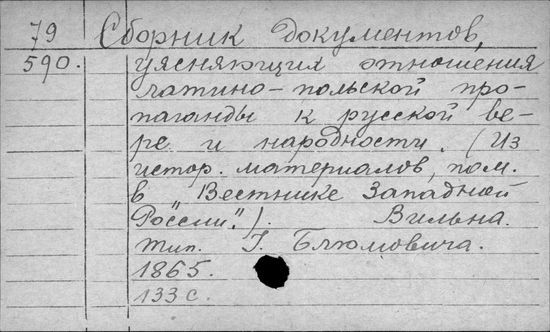 79 Сборник документов,
590. уясняющих отношения
латино-польской про-
паганды к русской ве-
ре и народности. (Из
истор. материалов, пом.
в "Вестнике Западной
России".). Вильна.
тип. Г. Блюмовича.
1865.
133 с.